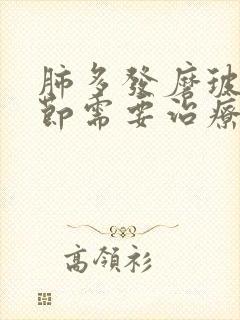 肺多發磨玻
節需要治療
高領衫